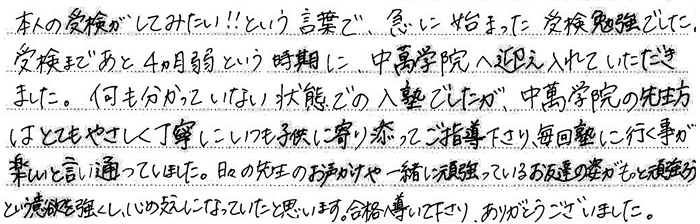 本人の受検がしてみたい!!という言葉で、急に始まった受検勉強でした。
受検まであと4ヵ月弱という時期に、中萬学院へ迎え入れていただき
ました。何も分かっていない状態での入塾でしたが、中萬学院の先生方
はとてもやさしく丁寧にいつも子供に寄り添ってご指導下さり、毎回塾に行く事が
楽しいと言い通っていました。日々の先生のお声がけや一緒に頑張っているお友達の姿がもっと頑張ろう
という意欲を強くし、心の支えになっていたと思います。合格へ導いて下さり、ありがとうございました。